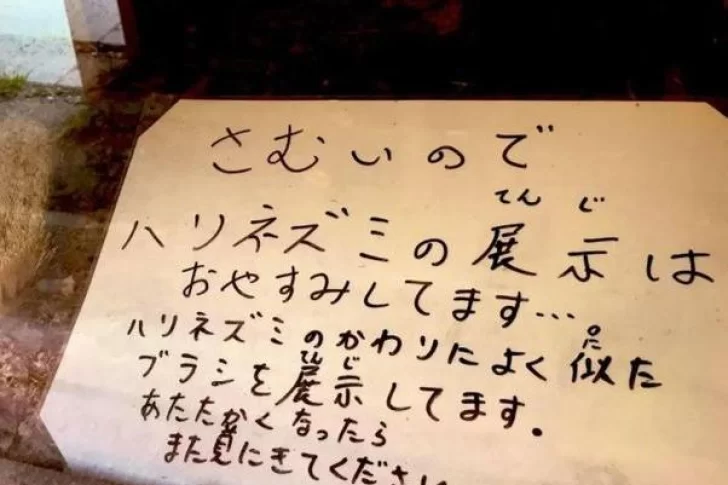 さむいので
てんじ
ハリネズミの展示は
おやすみしてます…
ハリネズミのかわりによく似た
に
てんじ
ブラシを展示してます。
あたたかくなったら
また見にきてください